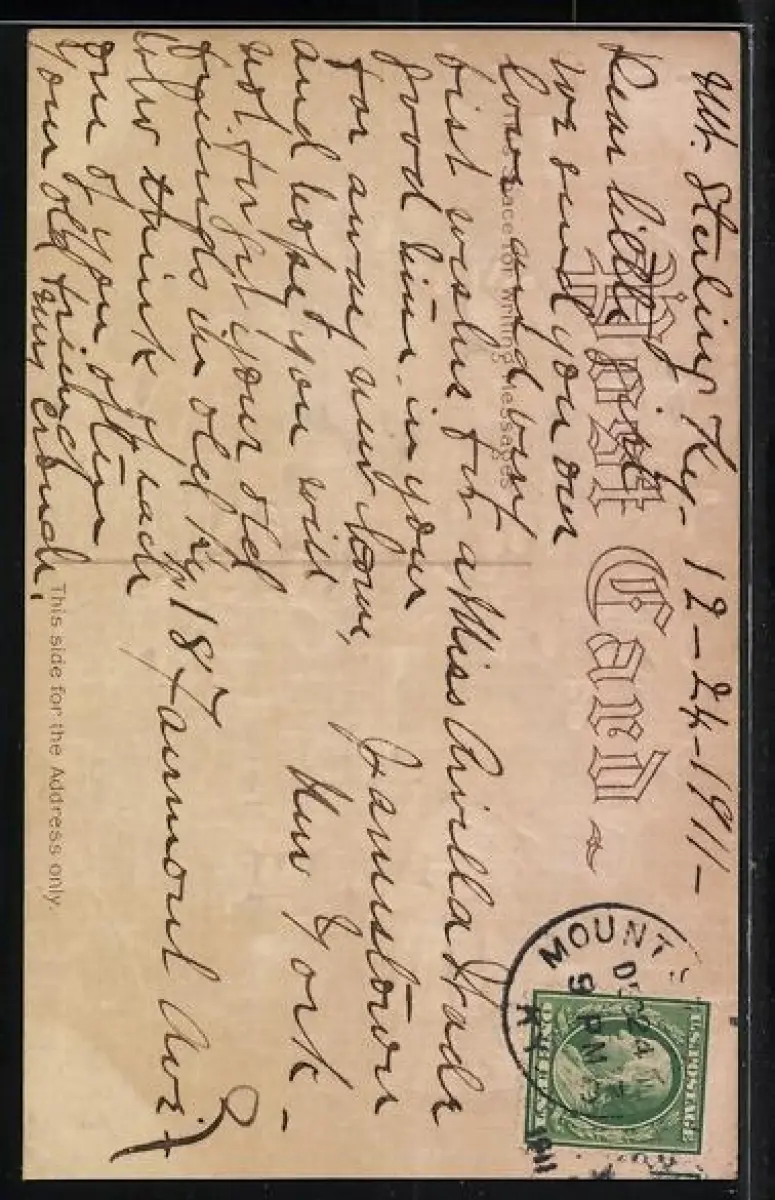 Mt. Sterling Ky- 12-24-1911-
Post Card
Dear little girl
we send you our
love and best
This space for writing Messages
best wishes for a
good time in your
far away new home,
and hope you will
not forget your old
friends in old Ky
who think
one of you often
your old friend
Miss Arvilla
Jamestown
New York-
187 Fairmount Ave.
This side for the Address only.
MOUNT
DEC 24
9 PM
KY.
1911
U.S. POSTAGE